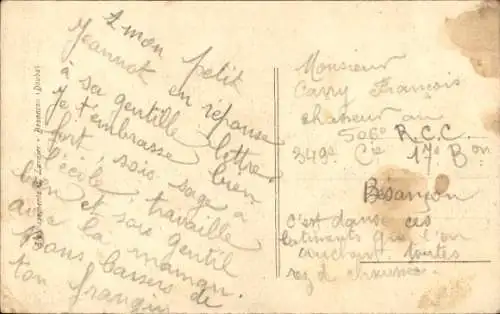 A mon petit
Jeannot en réponse
à sa gentille lettre.
Je t'embrasse bien
fort, sois sage à
l'école, travaille
bien et sois gentil
avec la maman.
Bons baisers de
ton frangin
Monsieur
Carry François
chasseur au
506e R.C.C.
349e Cie 17e Bon
Besançon
C'est dans ces
batiments que l'on
couchait toutes
rez d chaussée.